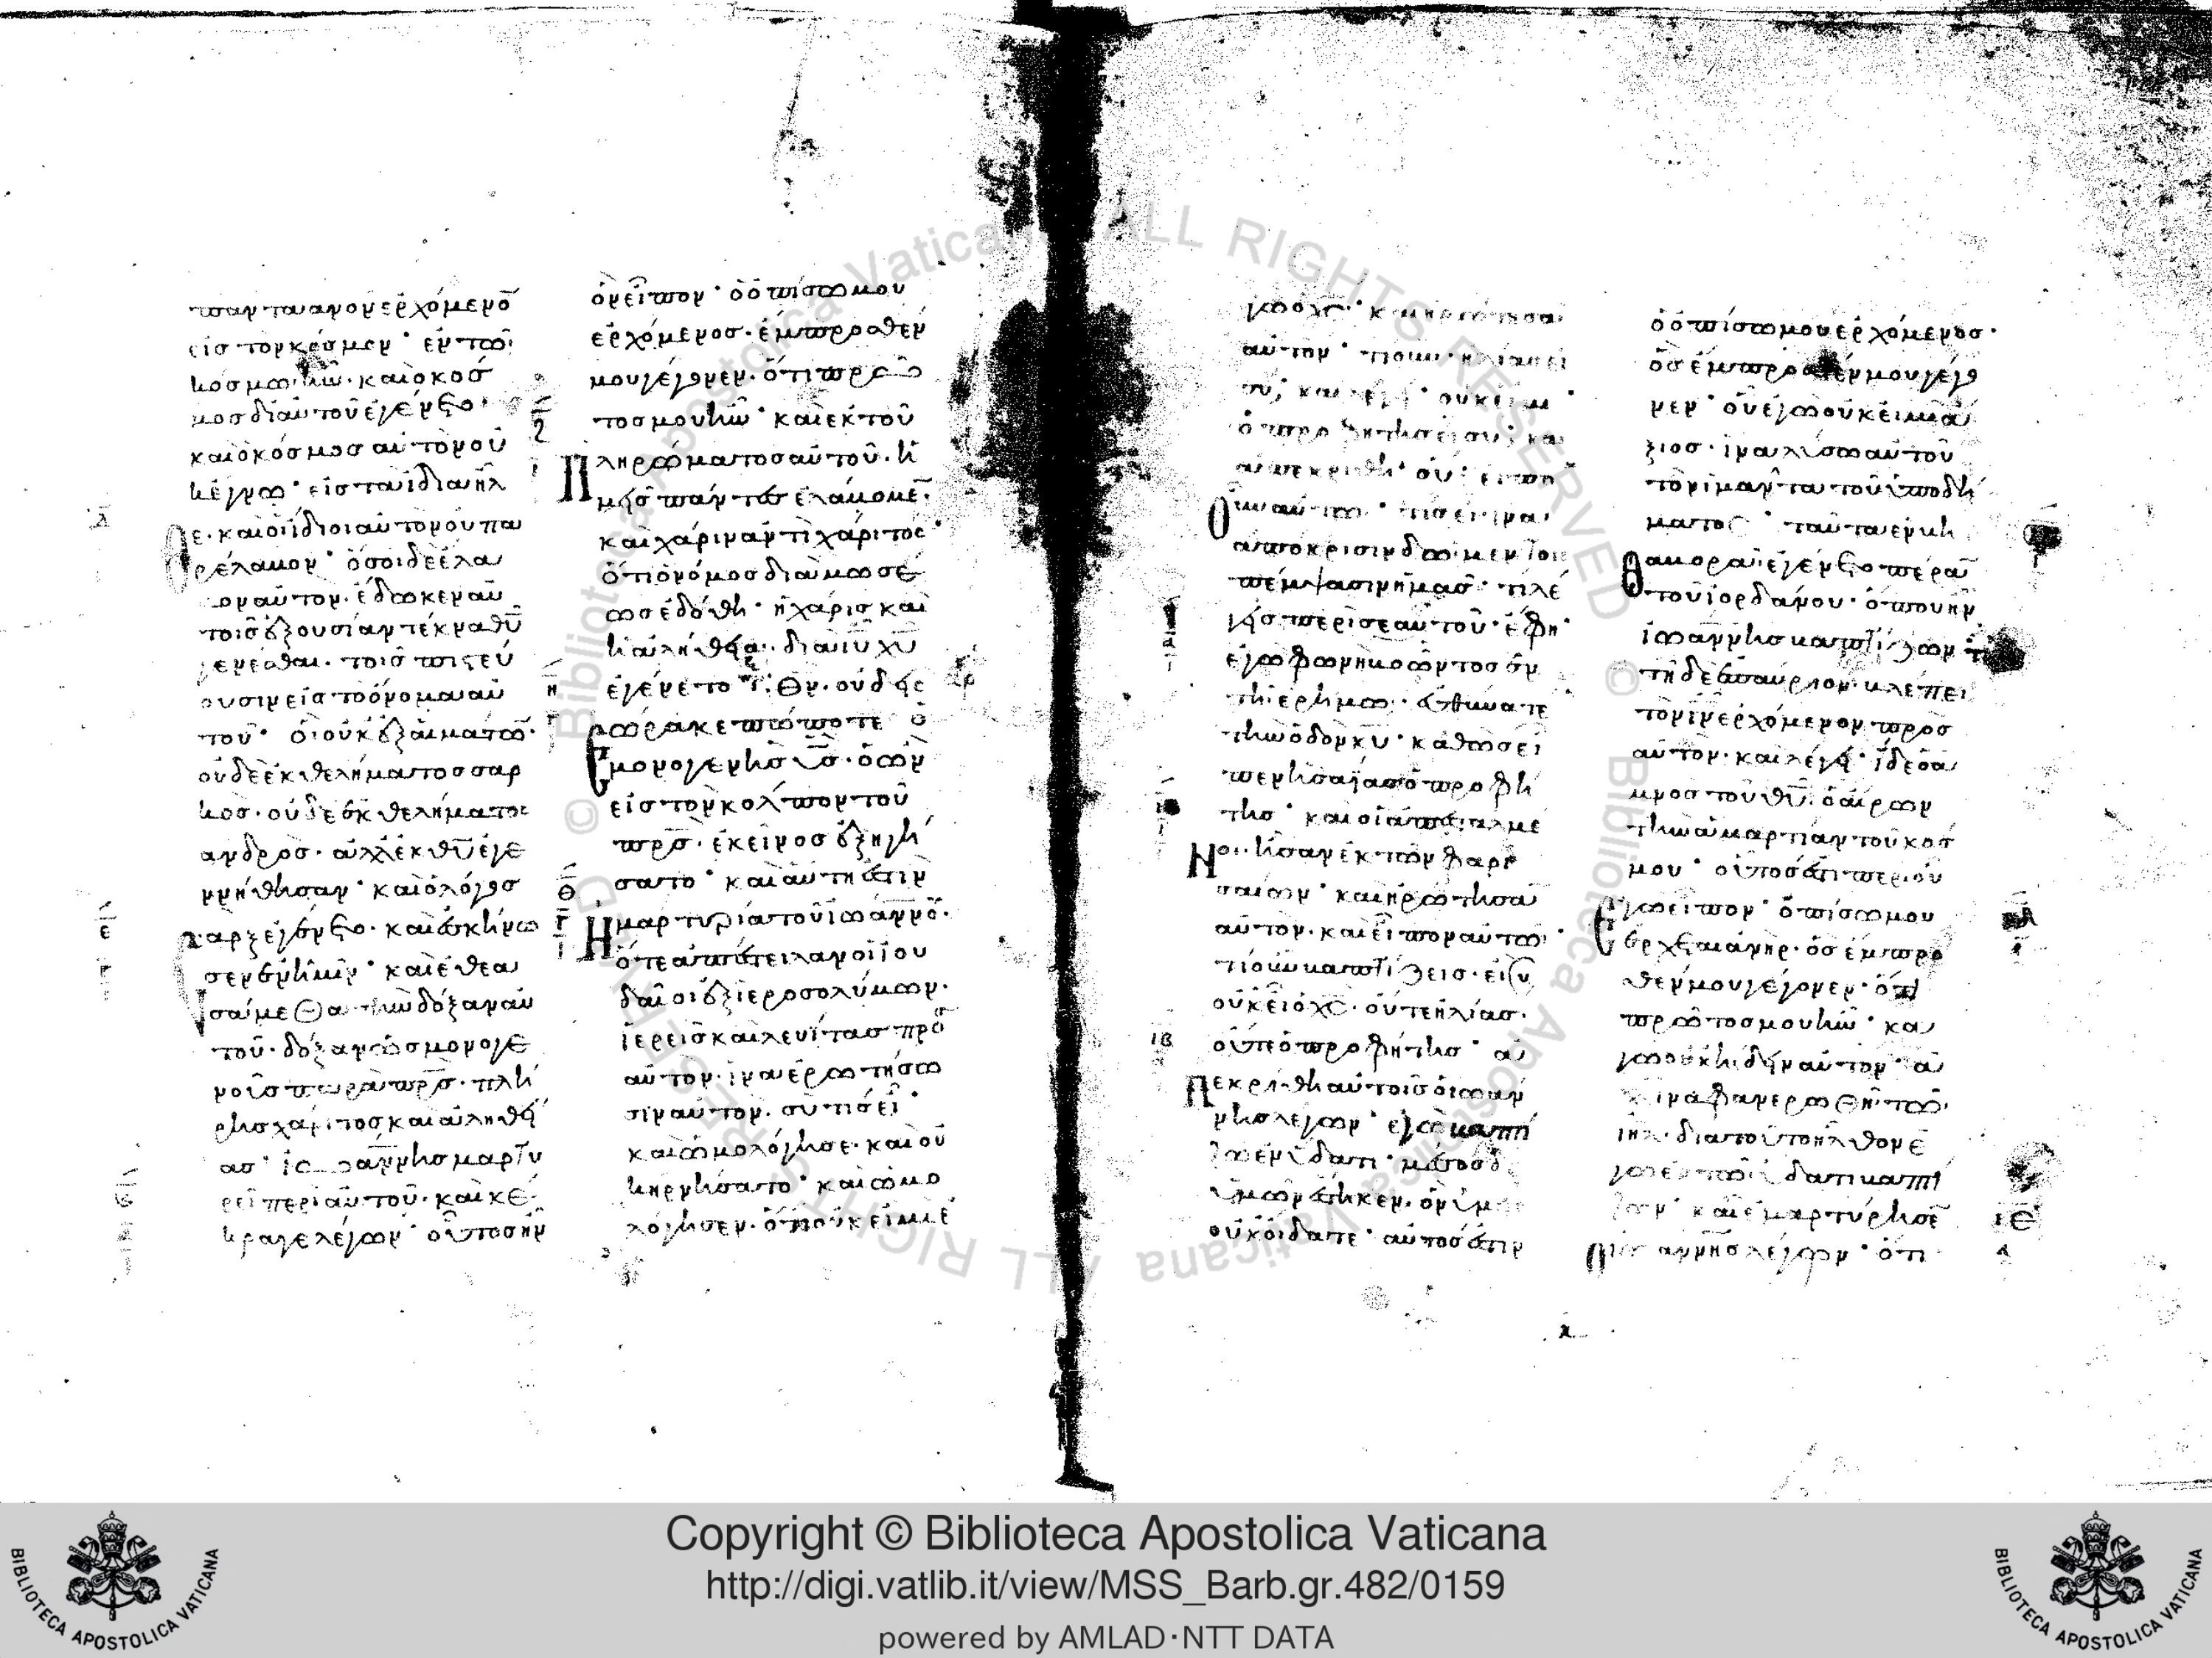 παντα ανον ερχόμενο̅
εἰς τον κόσμον · ἐν τῶ
κόσμω ἦν · και ὁ κοσ
μος δι αυτοῦ ἐγένετο ·
και ὁ κόσμος αυτον οὐ
κ ἔγνω · εἰς τα ἴδια ἦλ
θε · και οἱ ἴδιοι αυτον ου πα
ρέλαβον · ὅσοι δε ἔλα
ον αυτον · ἔδωκεν αυ
τοῖς ἐξουσίαν τέκνα θυ̅
γενέσθαι · τοῖς πιστεύ
ουσιν εἰς το ὄνομα αυ
τοῦ · οἱ οὐκ ἐξ αἱμάτω̅ ·
οὐδε ἐκ θελήματος σαρ
κός · οὐδε ἐκ θελήματος
ανδρὸς · αλλ ἐκ θυ̅ ἐγε
ννήθησαν · και ὁ λόγος
σαρξ ἐγένετο · και ἐσκήνω
σεν ἐν ἡμῖν · και ἐθεα
σαίμεθα την δόξαν αυ
τοῦ · δόξαν ὡς μονογε
νοῦς παρα πρ̅ς · πλή
ρης χάριτος και αληθεί
ας · ἰωάννης μαρτυ
ρεῖ περι αυτοῦ · και κέ
κραγε λέγων · οὗτος ἦν
ὃν εἶπον · ὁ ὀπίσω μου
ερχόμενος · ἔμπροσθεν
μου γέγονεν · ὅτι πρῶ
τος μου ἦν · και εκ τοῦ
πληρώματος αυτοῦ · ἡ
μεῖς πάντες ἐλάβομε̅ ·
και χάριν αντι χάριτος ·
ὅτι ὁ νόμος δια μωσέ
ως ἐδόθη · ἡ χάρις και
ἡ αλήθεια · δια ιυ̅ χυ̅
ἐγένετο · θν̅ · ουδεις
ἑώρακε πώποτε ὁ
μονογενὴς υς̅ · ὁ ὢν
εἰς τον κόλπον τοῦ
πρ̅ς · ἐκεῖνος ἐξηγή
σατο · και αὕτη ἐστιν
ἡ μαρτυρία τοῦ ἰωάννου ·
ὅτε απέστειλαν οἱ ἰου
δαῖοι ἐξ ἱεροσολύμων ·
ἱερεῖς και λευίτας πρὸ
αυτον · ἵνα ἐρωτήσω
σιν αυτον · συ τίς εἶ ·
και ὡμολόγησε · και οὐ
κ ηρνήσατο · και ὡμο
λόγησεν · ὅτι οὐκ εἰμι ἐ
γω ὁ χς̅ · και ηρώτησα
αυτον · τί οὖν · ηλίας εἶ
σύ; και λέγει · οὐκ εἰμι ·
ὁ προφήτης εἶ συ; και
απεκρίθη · οὔ · εἶπον
οὖν αυτω · τίς εἶ · ἵνα
απόκρισιν δῶμεν τοῖς
πέμψασιν ἡμᾶς · τί λέ
γεις περι σεαυτοῦ · ἔφη ·
ἐγω φωνη βοῶντος ἐν
τη ἐρήμω · εὐθύνατε
την ὁδον κυ̅ · καθὼς εἶ
πεν ησαΐας ὁ προφή
της · και οἱ απεσταλμέ
νοι · ἦσαν ἐκ τῶν φαρι
σαίων · και ηρώτησα̅
αυτον · και εἶπον αυτω ·
τί οὖν βαπτίζεις · ει συ
οὐκ εἶ ὁ χς̅ · οὔτε ηλίας ·
οὔτε ὁ προφήτης · α
πεκρίθη αυτοῖς ὁ ἰωάν
νης λέγων · εγω βαπτί
ζω ἐν ὕδατι · μέσος δε
ὑμῶν ἕστηκεν · ὃν ὑμεῖς
οὐκ οἴδατε · αυτος ἐστιν
ὁ ὀπίσω μου ερχόμενος ·
ὃς ἔμπροσθέν μου γέγο
νεν · οὗ εγω οὐκ εἰμι α
ξιος · ἵνα λύσω αυτοῦ
τον ἱμάντα τοῦ ὑποδή
ματος · ταῦτα ἐν βη
θαβορα ἐγένετο πέρα̅
τοῦ ἰορδάνου · ὅπου ην
ἰωάννης βαπτίζων
τη δε ἐπαύριον βλέπει
τον ιν̅ ερχόμενον προς
αυτον · και λέγει · ἴδε ὁ α
μνος τοῦ θυ̅ · ὁ αἴρων
την αμαρτίαν τοῦ κοσ
μου · οὗτος ἐστι περι οὗ
εγω εἶπον · ὀπίσω μου
ἔρχεται ανηρ · ὃς ἔμπρο
θεν μου γέγονεν · ὅτι
πρῶτος μου ἦν · κα
γω οὐκ ἤδειν αυτον · α
λλ ἵνα φανερωθη τῶ
ιηλ · δια τοῦτο ἦλθον ἐ
γω ἐν τῶ ὕδατι βαπτί
ζων · και ἐμαρτύρησε̅
ἰωάννης λέγων · ὅτι
Copyright © Biblioteca Apostolica Vaticana
http://digi.vatlib.it/view/MSS_Barb.gr.482/0159
powered by AMLAD·NTT DATA